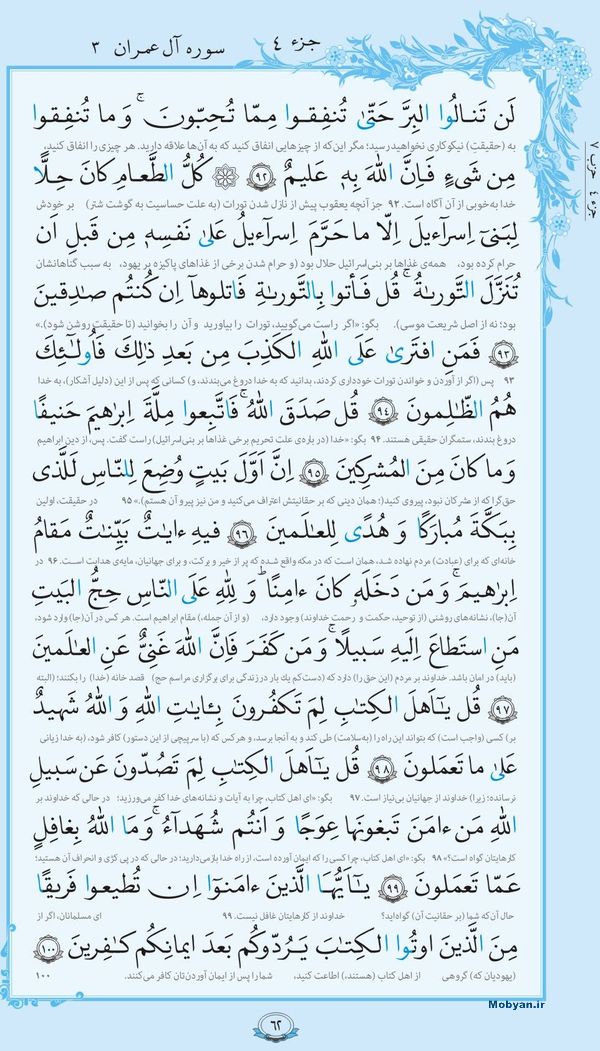 جزء ٤
سوره آل عمران ٣
جزء ٤ حزب ٧
لَن تَنالُوا البِرَّ حَتّىٰ تُنفِقوا مِمّا تُحِبّونَ ۚ وَما تُنفِقوا
به (حقیقتِ) نیکوکاری نخواهید رسید؛ مگر این‌که از چیزهایی انفاق کنید که به آن‌ها علاقه دارید. هر چیزی را انفاق کنید،
مِن شَیءٍ فَاِنَّ اللهَ بِهٖ عَلیمٌ ﴿٩٢﴾ ۞ كُلُّ الطَّعامِ كانَ حِلًّا
خدا به‌خوبی از آن آگاه است. ٩٢ جز آنچه یعقوب پیش از نازل شدن تورات (به علت حساسیت به گوشت شتر) بر خودش
لِبَنیٓ اِسرآءیلَ اِلّا ما حَرَّمَ اِسرآءیلُ عَلىٰ نَفسِهٖ مِن قَبلِ اَن
حرام کرده بود، همه‌ی غذاها بر بنی‌اسرائیل حلال بود (و حرام شدن برخی از غذاهای پاکیزه بر یهود، به سبب گناهانشان
تُنَزَّلَ التَّورىٰةُ ۗ قُل فَأتوا بِالتَّورىٰةِ فَاتلوهاۤ اِن كُنتُم صادِقینَ
بود؛ نه از اصل شریعت موسی). بگو: «اگر راست می‌گویید، تورات را بیاورید و آن را بخوانید (تا حقیقت روشن شود).»
﴿٩٣﴾ فَمَنِ افتَرىٰ عَلَى اللهِ الكَذِبَ مِن بَعدِ ذٰلِكَ فَاُولٰٓئِكَ
٩٣ پس (اگر از آوردن و خواندن تورات خودداری کردند، بدانید که به خدا دروغ می‌بندند، و) کسانی که پس از این (دلیل آشکار)، به خدا
هُمُ الظّٰلِمونَ ﴿٩٤﴾ قُل صَدَقَ اللهُ ۗ فَاتَّبِعوا مِلَّةَ اِبرٰهیمَ حَنیفًا
دروغ بندند، ستمگران حقیقی هستند. ٩٤ بگو: «خدا (در باره‌ی علت تحریم برخی غذاها بر بنی‌اسرائیل) راست گفت. پس، از دین ابراهیم
وَما كانَ مِنَ المُشرِكینَ ﴿٩٥﴾ اِنَّ اَوَّلَ بَیتٍ وُضِعَ لِلنّاسِ لَلَّذی
حق‌گرا که از مشرکان نبود، پیروی کنید (؛ همان دینی که بر حقانیتش اعتراف می‌کنید و من نیز پیرو آن هستم).» ٩٥ در حقیقت، اولین
بِبَكَّةَ مُبارَكًا وَ هُدًى لِلعالَمینَ ﴿٩٦﴾ فیهِ ءایاتٌ بَیِّناتٌ مَقامُ
خانه‌ای که برای (عبادت) مردم نهاده شد، همان است که در مکه واقع شده که پر از خیر و برکت، و برای جهانیان، مایه‌ی هدایت است. ٩٦ در
اِبرٰهیمَ ۖ وَ مَن دَخَلَهٗ كانَ ءامِنًا ۗ وَ لِلّٰهِ عَلَى النّاسِ حِجُّ البَیتِ
آن (جا)، نشانه‌های روشنی (از توحید، حکمت و رحمت خداوند) وجود دارد، (و از آن جمله،) مقام ابراهیم است. هر کس در آن(جا) وارد شود،
مَنِ استَطاعَ اِلَیهِ سَبیلًا ۚ وَ مَن كَفَرَ فَاِنَّ اللهَ غَنیٌّ عَنِ العالَمینَ
(باید) در امان باشد. خداوند بر مردم (این حق را) دارد که (دست‌کم یک بار در زندگی برای برگزاری مراسم حج) قصد خانه (خدا) را بکنند؛ (البته
﴿٩٧﴾ قُل یٰۤاَهلَ الكِتابِ لِمَ تَكفُرونَ بِـٔایاتِ اللهِ وَ اللهُ شَهیدٌ
بر) کسی (واجب است) که بتواند این راه را (به‌سلامت) طی کند و به آنجا برسد، و هر کس که (با سرپیچی از این دستور) کافر شود، (به خدا زیانی
عَلىٰ ما تَعمَلونَ ﴿٩٨﴾ قُل یٰۤاَهلَ الكِتابِ لِمَ تَصُدّونَ عَن سَبیلِ
نرسانده؛ زیرا) خداوند از جهانیان بی‌نیاز است. ٩٧ بگو: «ای اهل کتاب، چرا به آیات و نشانه‌های خدا کفر می‌ورزید؛ در حالی که خداوند بر
اللهِ مَن ءامَنَ تَبغونَها عِوَجًا وَ اَنتُم شُهَدآءُ ۗ وَ مَا اللهُ بِغافِلٍ
کارهایتان گواه است؟» ٩٨ بگو: «ای اهل کتاب، چرا کسی را که ایمان آورده است، از راه خدا بازمی‌دارید؛ در حالی که در پی کژی و انحراف آن هستید؛
عَمّا تَعمَلونَ ﴿٩٩﴾ یٰۤاَیُّهَا الَّذینَ ءامَنوۤا اِن تُطیعوا فَریقًا
حال آن‌که شما (بر حقانیت آن) گواه‌اید؟ خداوند از کارهایتان غافل نیست. ٩٩ ای مسلمانان، اگر از
مِنَ الَّذینَ اوتُوا الكِتٰبَ یَرُدّوكُم بَعدَ ایمانِكُم كافِرینَ ﴿١٠٠﴾
(یهودیان که) گروهی از اهل کتاب (هستند،) اطاعت کنید، شما را پس از ایمان آوردن‌تان کافر می‌کنند. ١٠٠
Mobyan.ir
٦٢